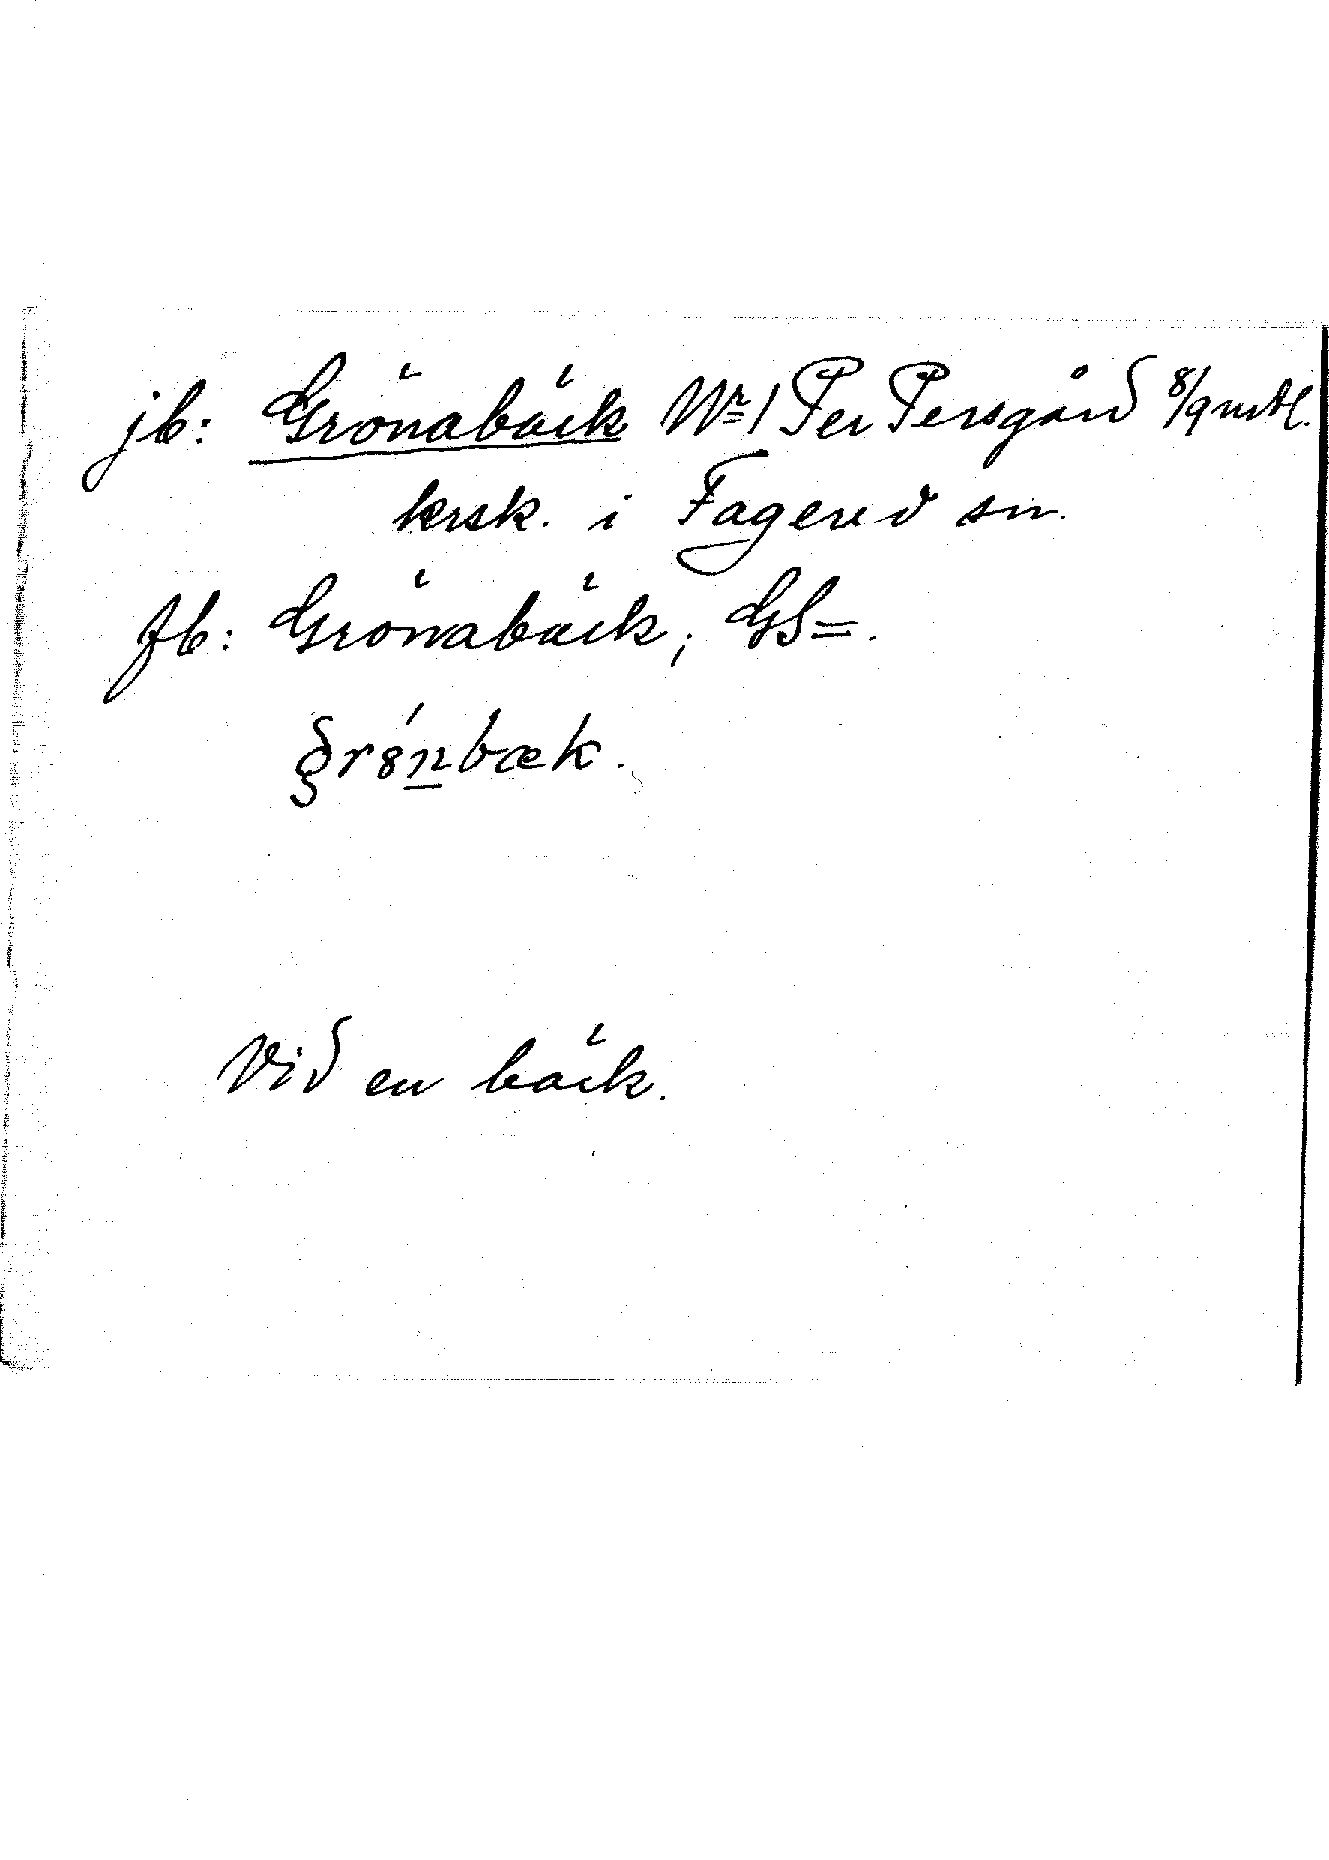 jb: Grönabäck Nr 1 Per Persgård 8/9 mtl.
krsk. i Fagered sn.
fb: Grönabäck, GS=.
bæk.
Vid en bäck.